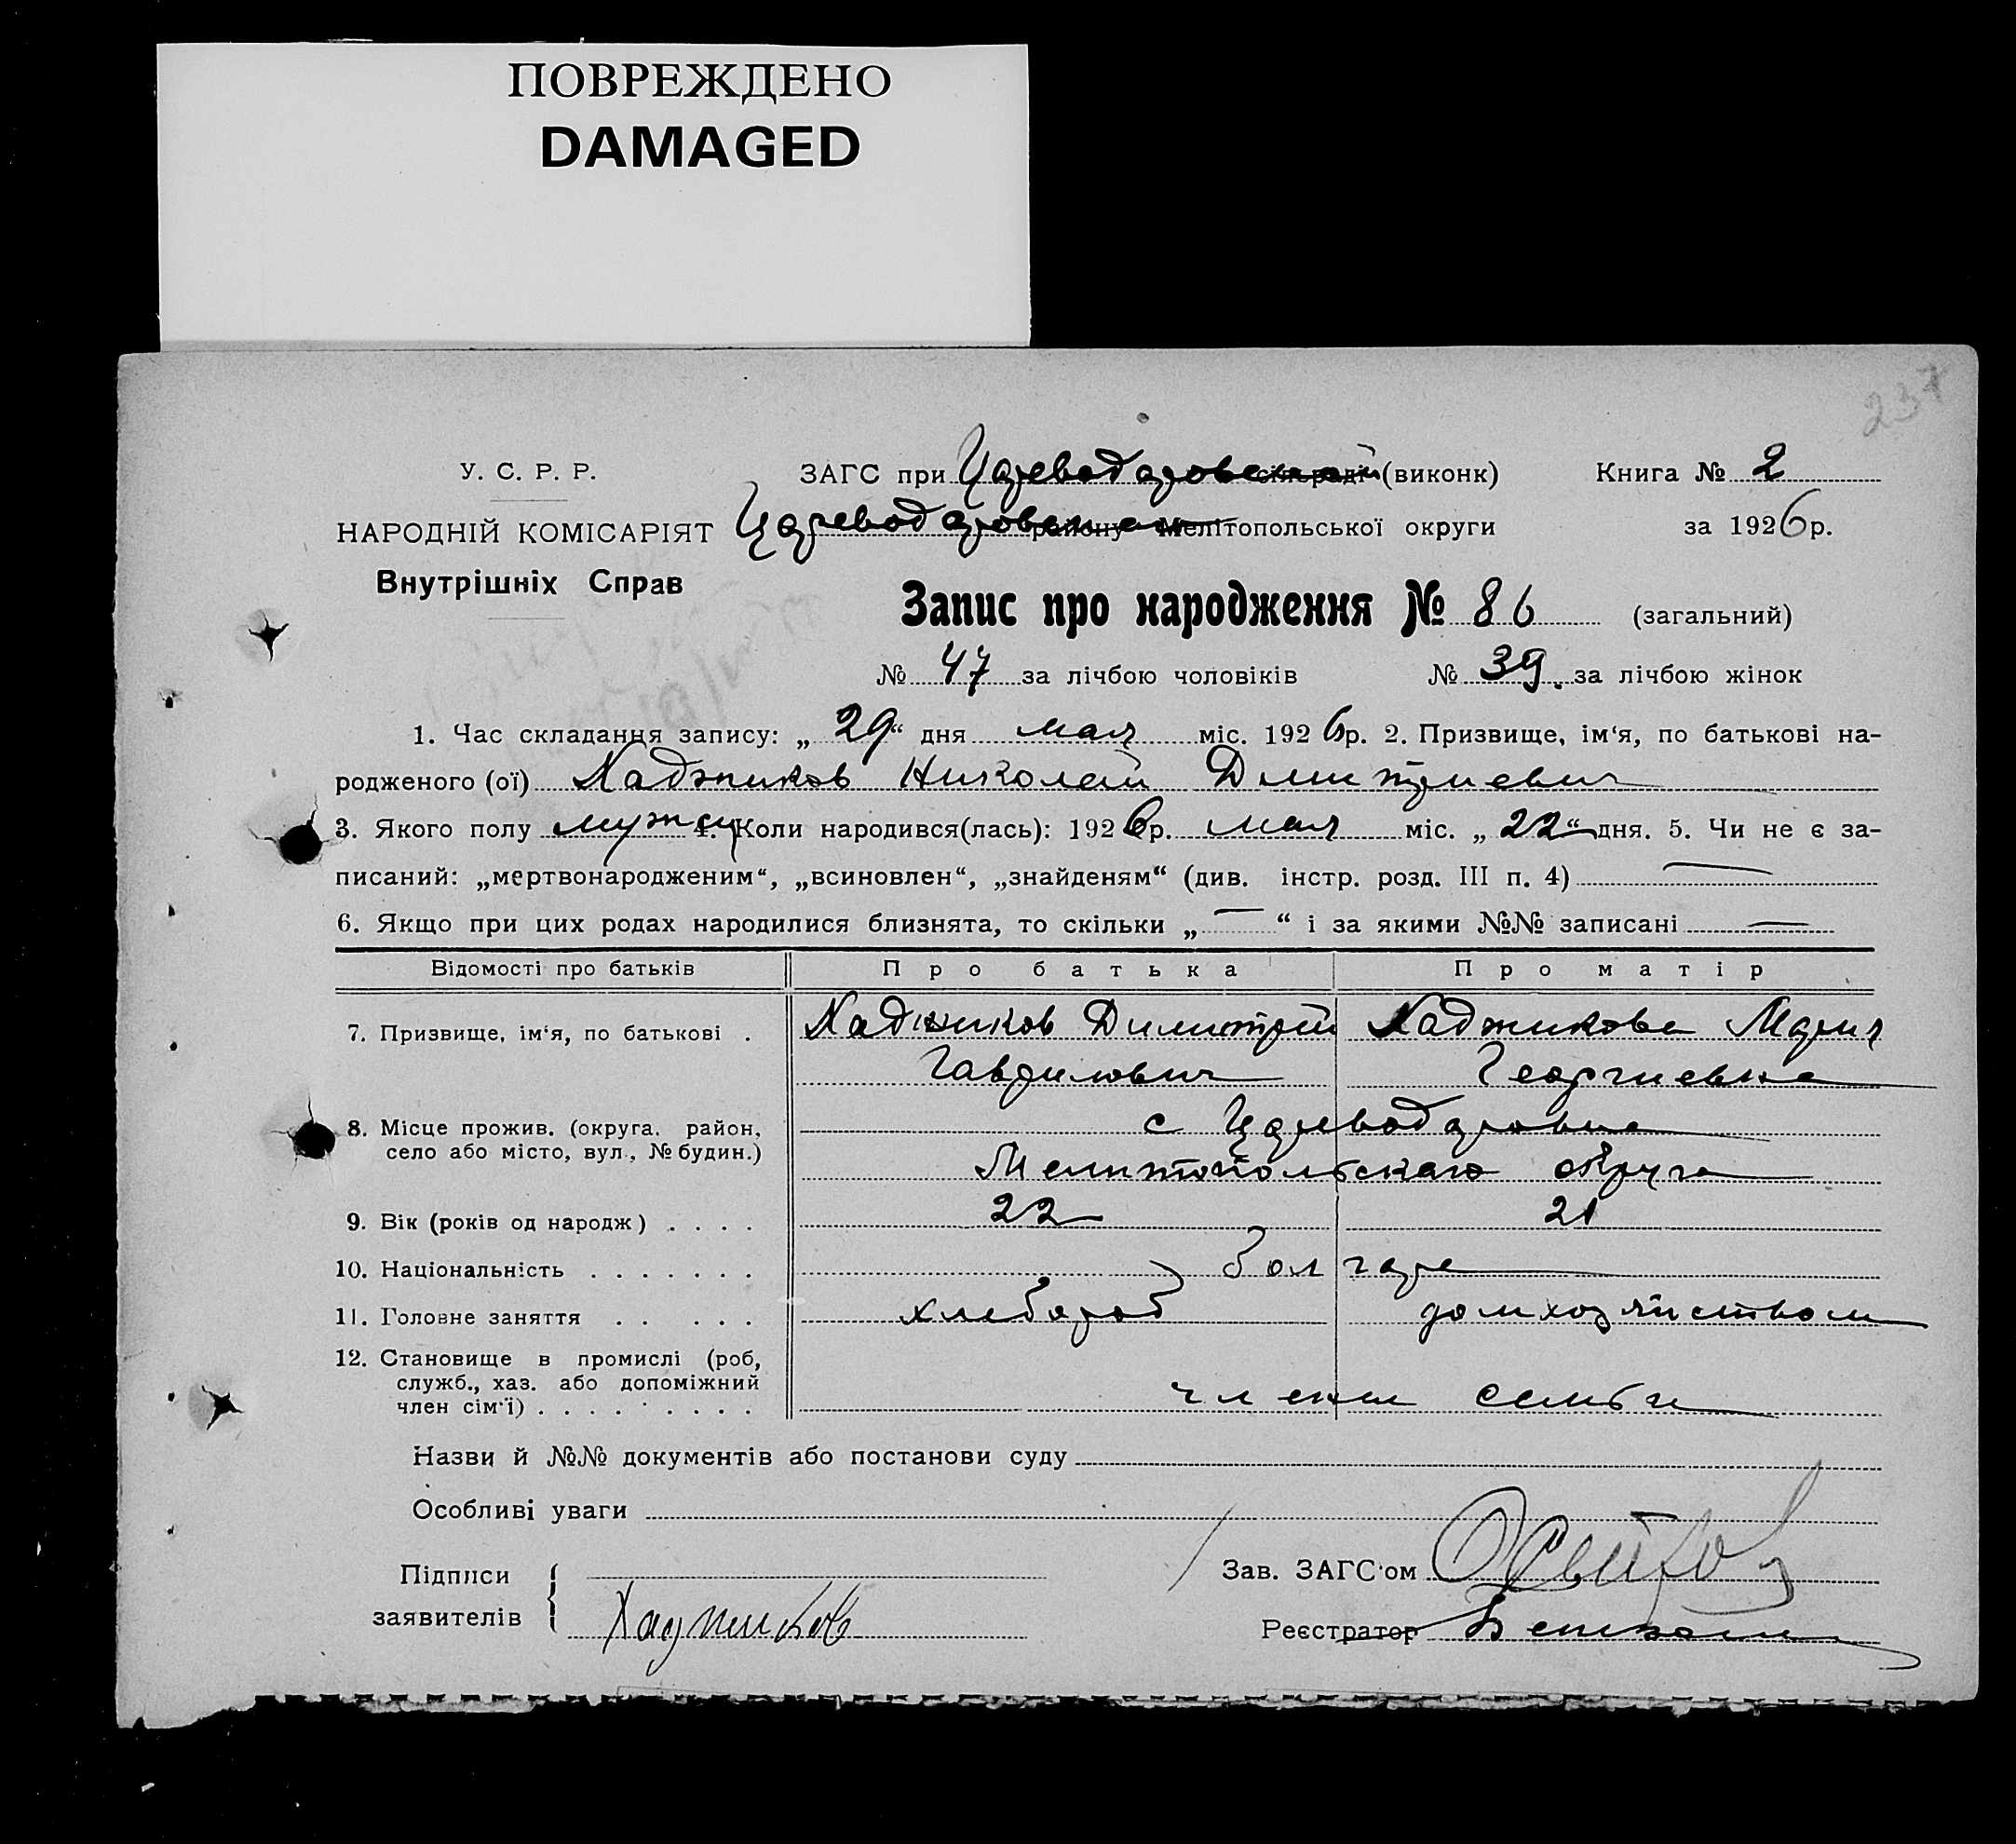 ПОВРЕЖДЕНО
DAMAGED
237
У. С. Р. Р.
ЗАГС при Цареводаровской сільраді (виконк)
Книга № 2
НАРОДНІЙ КОМІСАРІЯТ
Цареводаровском району Мелітопольської округи
за 1926 р.
Внутрішніх Справ
Запис про народження № 86 (загальний)
№ 47 за лічбою чоловіків № 39. за лічбою жінок
1. Час складання запису: „29“ дня мая міс. 1926 р. 2. Призвище, ім‘я, по батькові на-
родженого (ої) Хаджиков Николай Дмитриевич
3. Якого полу мужск 4. Коли народився(лась): 1926 р. мая міс. „22“ дня. 5. Чи не є за-
писаний: „мертвонародженим“, „всиновлен“, „знайденям“ (див. інстр. розд. III п. 4) —
6. Якщо при цих родах народилися близнята, то скільки „—“ і за якими №№ записані —
Відомості про батьків Про батька Про матір
7. Призвище, ім‘я, по батькові . Хаджиков Димитрий Хаджикова Мария
Гаврилович Георгиевна
8. Місце прожив. (округа. район, с Цареводаровка
село або місто, вул., № будин.) Мелитопольскаго округа
9. Вік (років од народж) . . . . 22 21
10. Національність . . . . . . . болгаре
11. Головне заняття . . . . . хлебороб домхозяйством
12. Становище в промислі (роб,
служб., хаз. або допоміжний
член сім‘ї) . . . . . . . . . члены семьи
Назви й №№ документів або постанови суду
Особливі уваги
Підписи
Зав. ЗАГС‘ом
заявителів Хаджиков
Реєстратор